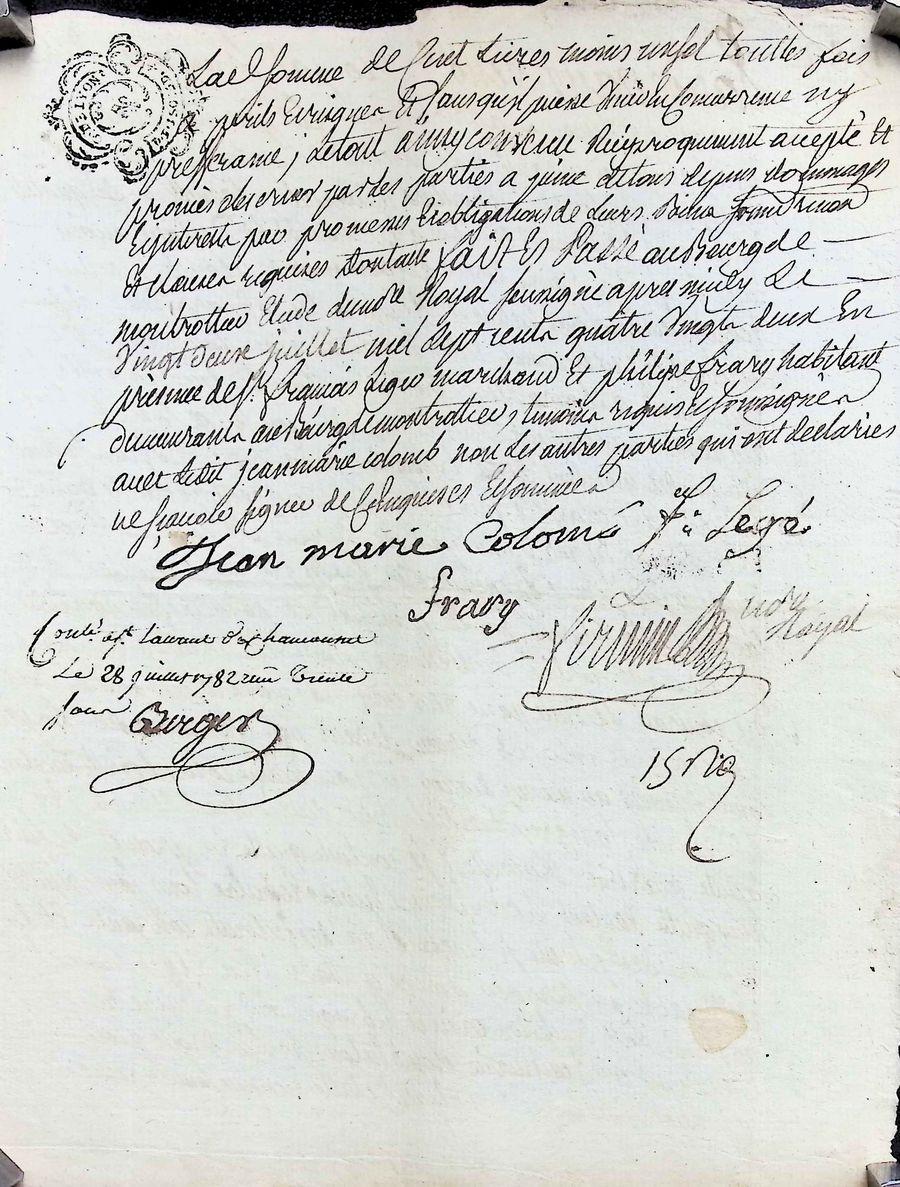 La ditte Somme de Cent Livres moins un sol touttes fois
perils Et risques Et sans qu'il puisse Nuire Concurrence ny
prefferance; Letout ainsy convenu Réciproquement accepté Et
promès observer par des parties a peine detous depens dommages
Et interets par promesses Et obligations de Leurs Soumissions
Et clauses requises Dontacte fait Et Passé au Bourg de
montrottier Etude du no.re Royal Soussigné apres midy Le
Vingt deux juillet mil Sept cents quatre Vingt deux En
presence de Sr. François Legé marchand Et philipe frary habitant
demeurants au Bourg de montrottier, timoins requis Et Soussignés
avec Ledit jean marie colomb non des autres parties qui ont declarés
ne Scavoir Signer de Ce Enquises Et Sommées
Jean marie Colomb f.s Legé
frary
Firmin no.re Royal
Con.lé a St. Laurent de Chamousset
Le 28 juillet 1782 Trente
Sous Berger
15